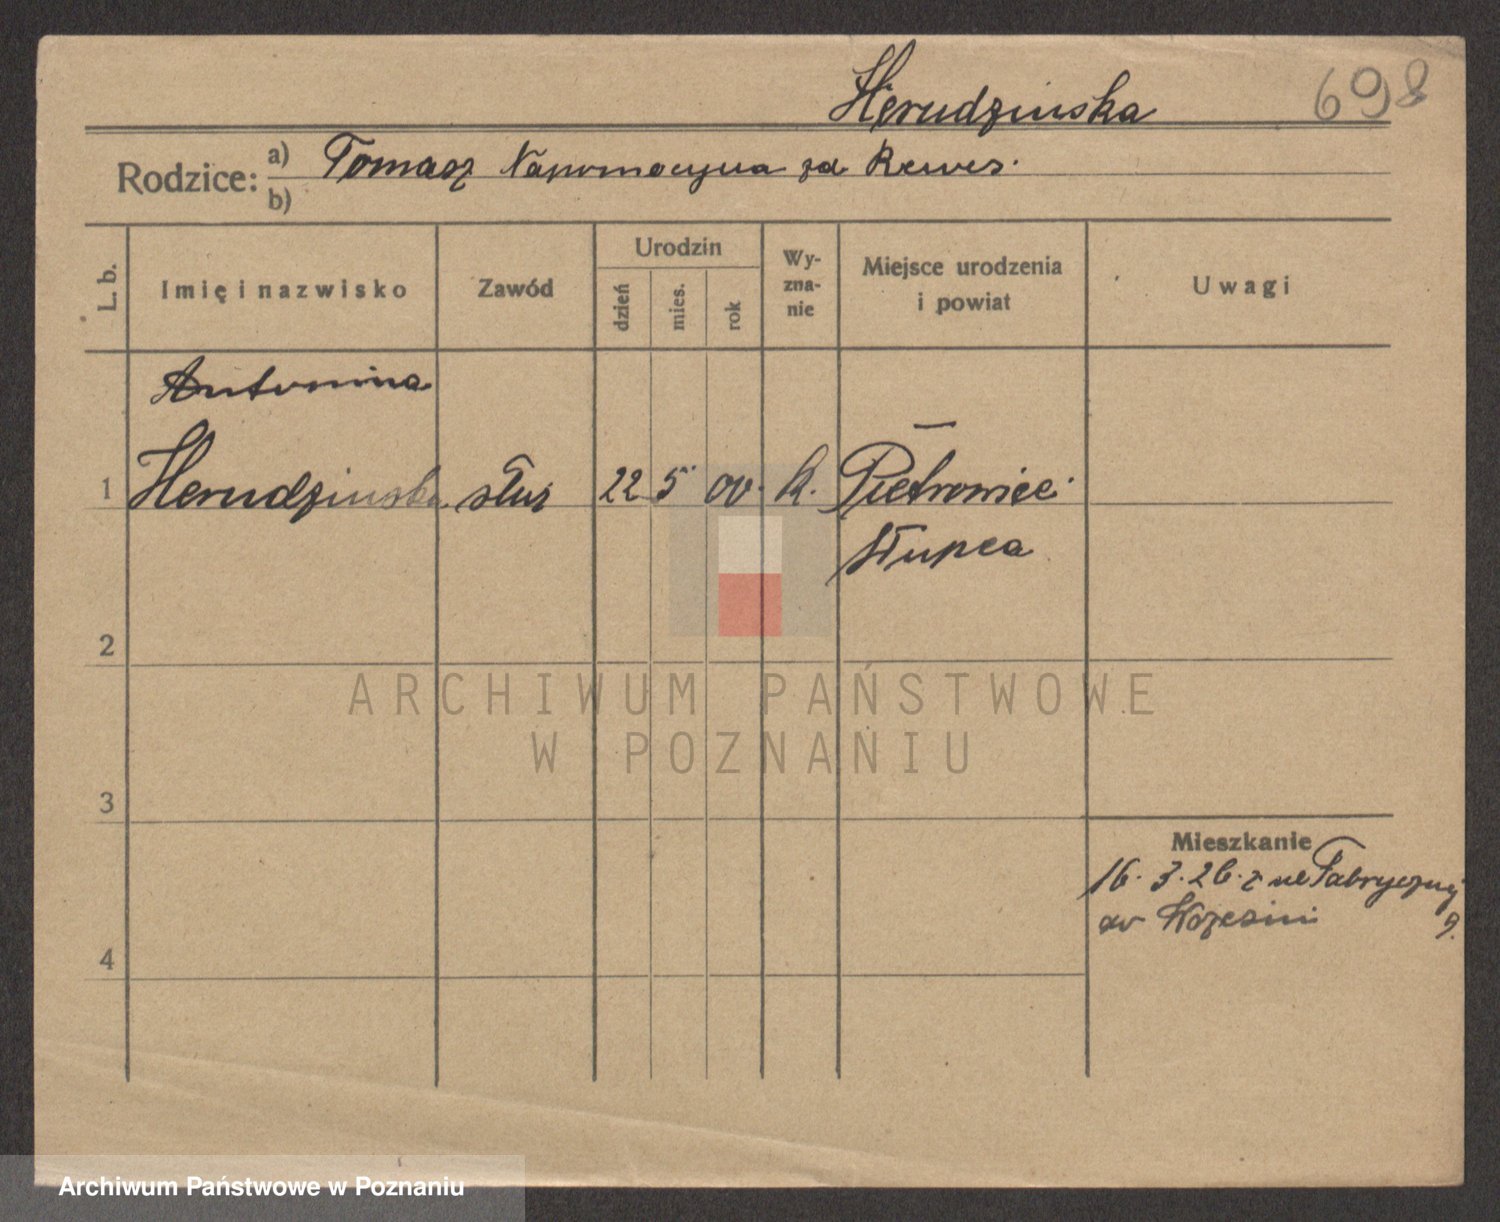 Herudzinska 698
Rodzice: a) Tomasz Napomocyna zd Rewers.
b)
L. b. Imię i nazwisko Zawód Urodzin dzień mies. rok Wyznanie Miejsce urodzenia i powiat Uwagi
Antonina
1 Herudzinska służ 22 5 00. k. Pietrowice
Słupca
2
ARCHIWUM PAŃSTWOWE
W POZNANIU
3
Mieszkanie
16. 3. 26. z ul Fabrycznej
9.
4
Archiwum Państwowe w Poznaniu